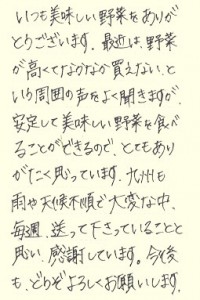 いつも美味しい野菜をありが
とうございます。最近は、野菜
が高くてなかなか買えない、と
いう周囲の声をよく聞きますが、
安定して美味しい野菜を食べ
ることができるので、とてもあり
がたく思っています。九州も
雨や天候不順で大変な中、
毎週、送って下さっていることと
思い、感謝しています。今後
も、どうぞよろしくお願いします。